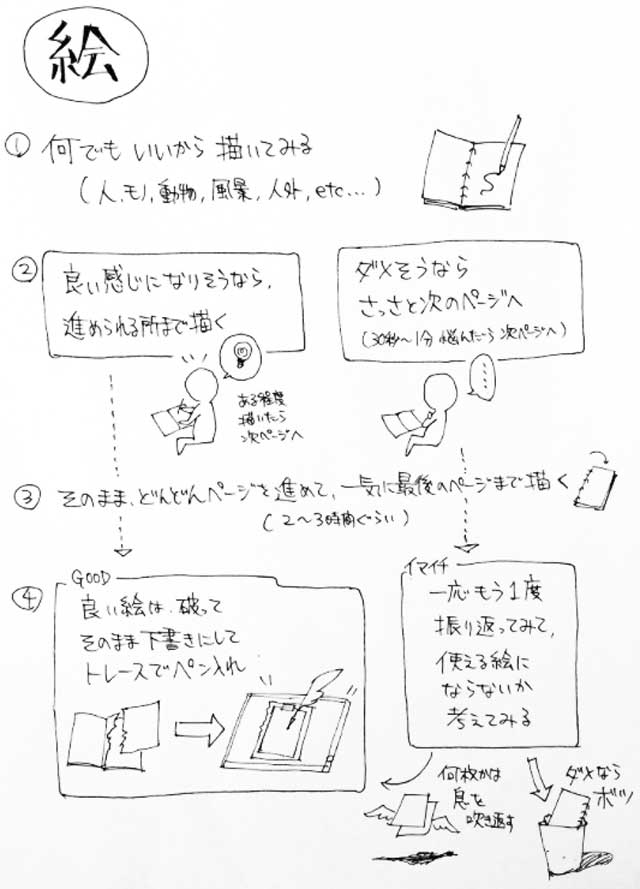 絵
① 何でもいいから描いてみる
(人、モノ、動物、風景、人外、etc...)
②
良い感じになりそうなら、
進められる所まで描く
ダメそうなら
さっさと次のページへ
(30秒〜1分 悩んだら 次ページへ)
ある程度
描いたら
次ページへ
③ そのまま、どんどんページを進めて、一気に最後のページまで描く
(2〜3時間ぐらい)
④
GOOD
良い絵は、破って
そのまま下書きにして
トレースでペン入れ
イマイチ
一応もう1度
振り返ってみて、
使える絵に
ならないか
考えてみる
何枚かは
息を
吹き返す
ダメなら
ボツ